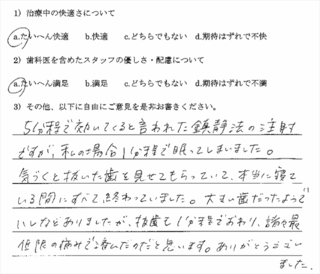 1）治療中の快適さについて
a.たいへん快適　b.快適　c.どちらでもない　d.期待はずれで不快
2）歯科医を含めたスタッフの優しさ・配慮について
a.たいへん満足　b.満足　c.どちらでもない　d.期待はずれで不満
3）その他、以下に自由にご意見を是非お書きください。
5分程で効いてくると言われた鎮静法の注射
ですが、私の場合1分程で眠ってしまいました。
気づくと抜いた歯を見せてもらっていて、本当に寝て
いる間にすべて終わっていました。大きい歯だったようで
ありましたが、抜歯も1分程でおわり、最
低限の痛みで済んだのだと思います。ありがとうござい
ました。